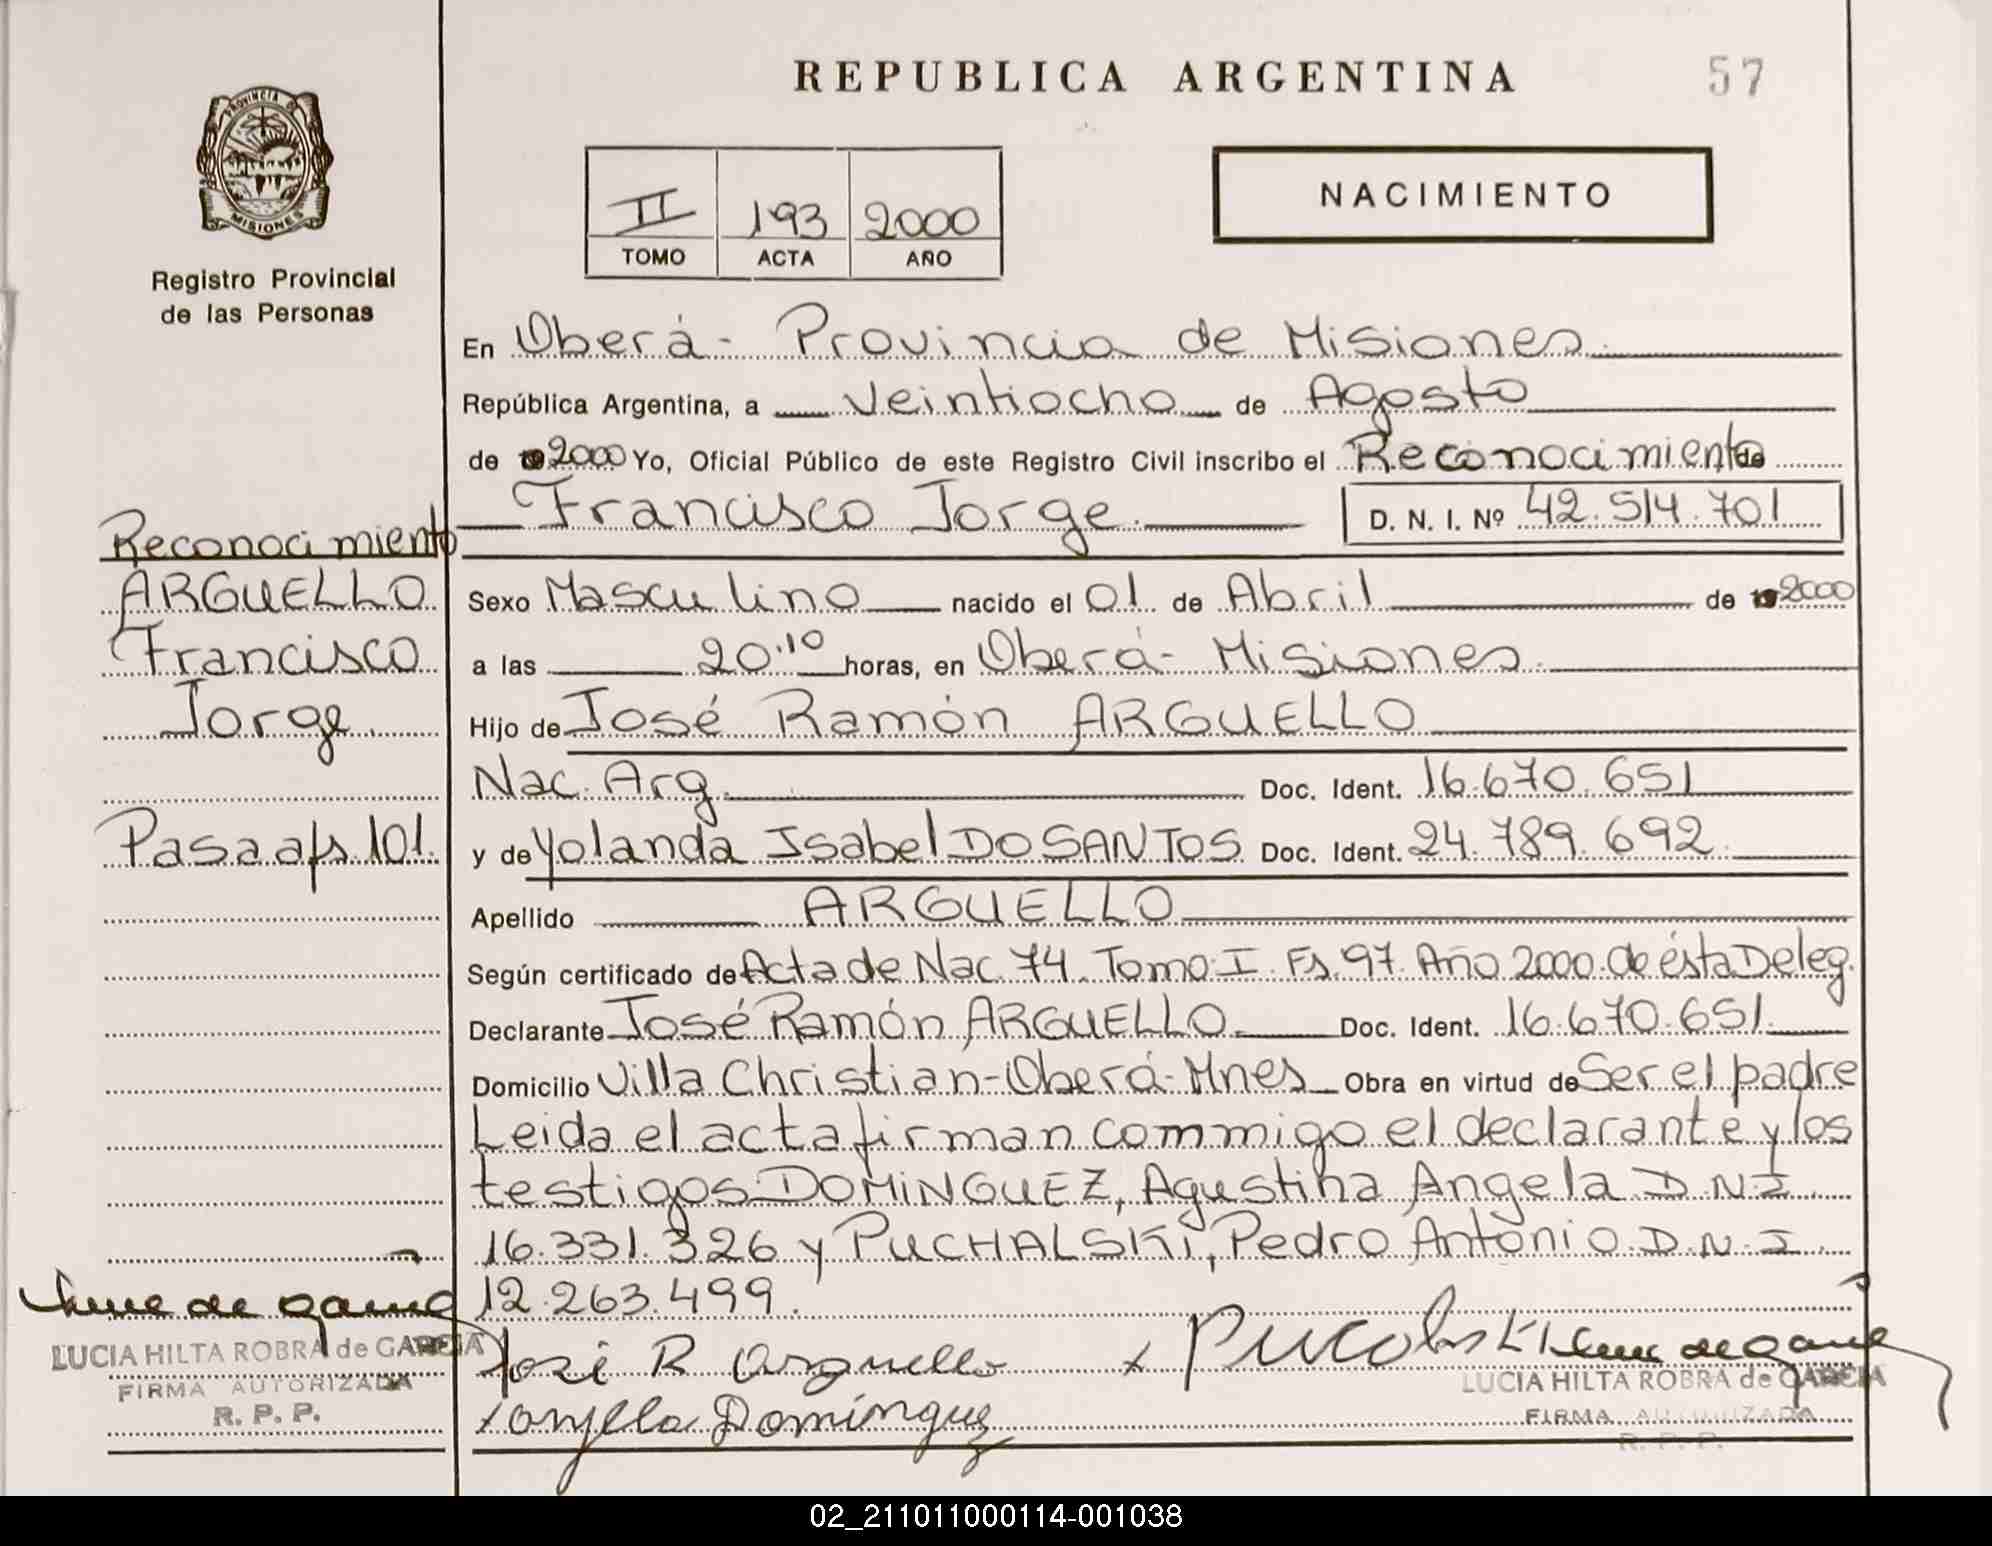 REPUBLICA ARGENTINA
57
PROVINCIA DE
MISIONES
Registro Provincial
de las Personas
II 193 2000
TOMO ACTA AÑO
NACIMIENTO
En Oberá - Provincia de Misiones
República Argentina, a Veintiocho de Agosto
de 2000 Yo, Oficial Público de este Registro Civil inscribo el Reconocimiento de
Francisco Jorge D. N. I. Nº 42.514.701
Reconocimiento
ARGUELLO
Francisco
Jorge
Pasa a fs 101.
Sexo Masculino nacido el 01 de Abril de 2000
a las 20.10 horas, en Oberá - Misiones.
Hijo de José Ramón ARGUELLO
Nac. Arg. Doc. Ident. 16.670.651
y de Yolanda Isabel DO SANTOS Doc. Ident. 24.789.692.
Apellido ARGUELLO
Según certificado de Acta de Nac. 74. Tomo I. Fs. 97. Año 2000. de ésta Deleg.
Declarante José Ramón ARGUELLO. Doc. Ident. 16.670.651.
Domicilio Villa Christian - Oberá - Mnes Obra en virtud de Ser el padre
Leida el acta firman commigo el declarante y los
testigos DOMINGUEZ, Agustina Angela D.N.I
16.331.326 y PUCHALSKI, Pedro Antonio D.N.I.
12.263.499.
José R Arguello
LUCIA HILTA ROBRA de GARCIA
FIRMA AUTORIZADA
R. P. P.
LUCIA HILTA ROBRA de GARCIA
FIRMA AUTORIZADA
R. P. P.
02_211011000114-001038